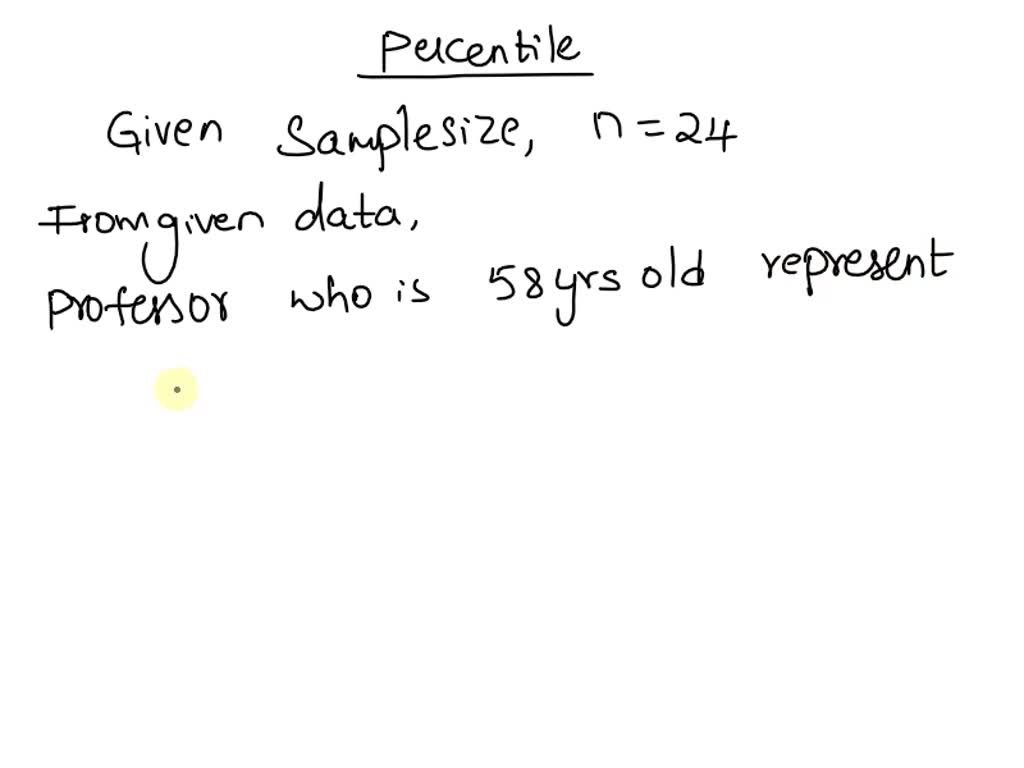 Percentile
Given Samplesize, n = 24
From given data,
Professor who is 58 yrs old represent